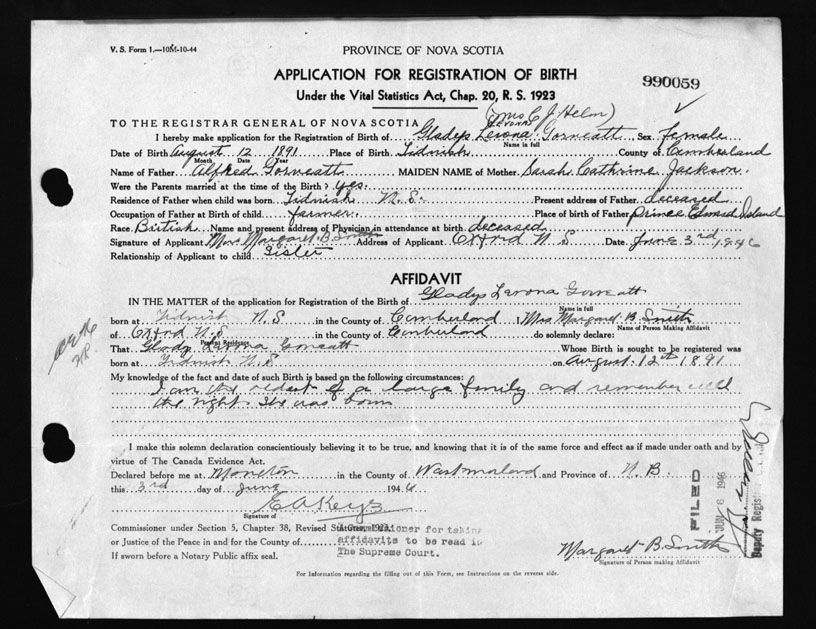 V. S. Form 1.—10M-10-44
PROVINCE OF NOVA SCOTIA
APPLICATION FOR REGISTRATION OF BIRTH
990059
Under the Vital Statistics Act, Chap. 20, R. S. 1923
(Mrs C J Helm)
LEVONA
TO THE REGISTRAR GENERAL OF NOVA SCOTIA
I hereby make application for the Registration of Birth of Gladys Levona Gorneatt Sex female
Name in full
Date of Birth August 12 1891 Place of Birth Tidnish County of Cumberland
Month Date Year
Name of Father Alfred Gorneatt MAIDEN NAME of Mother Sarah Cathrine Jackson.
Were the Parents married at the time of the Birth? yes.
Residence of Father when child was born Tidnish N.S. Present address of Father deceased
Occupation of Father at Birth of child farmer. Place of birth of Father Prince Edward Island
Race British Name and present address of Physician in attendance at birth deceased
Signature of Applicant Mrs Margaret B Smith Address of Applicant Oxford N S Date June 3rd 1946
Relationship of Applicant to child Sister
AFFIDAVIT
IN THE MATTER of the application for Registration of the Birth of Gladys Levona Gorneatt
Name in full
born at Tidnish N.S in the County of Cumberland I, Mrs Margaret B Smith
Name of Person Making Affidavit
of Oxford N.S in the County of Cumberland do solemnly declare:
Present Residence
That Gladys Levona Gorneatt Whose Birth is sought to be registered was
born at Tidnish N.S on August 12th 1891
My knowledge of the fact and date of such Birth is based on the following circumstances:
I am the oldest of a large family and remember well
the night she was born
I make this solemn declaration conscientiously believing it to be true, and knowing that it is of the same force and effect as if made under oath and by
virtue of The Canada Evidence Act.
Declared before me at Moncton in the County of Westmorland and Province of N.B.
this 3rd day of June 1946
E A Keys
Signature of
Commissioner under Section 5, Chapter 38, Revised Statutes, 1923,
A Commissioner for taking
or Justice of the Peace in and for the County of
affidavits to be read in
If sworn before a Notary Public affix seal.
The Supreme Court.
FILED
JUN 6 1946
Deputy Registrar
Margaret B. Smith
Signature of Person making Affidavit
For Information regarding the filling out of this Form, see Instructions on the reverse side.